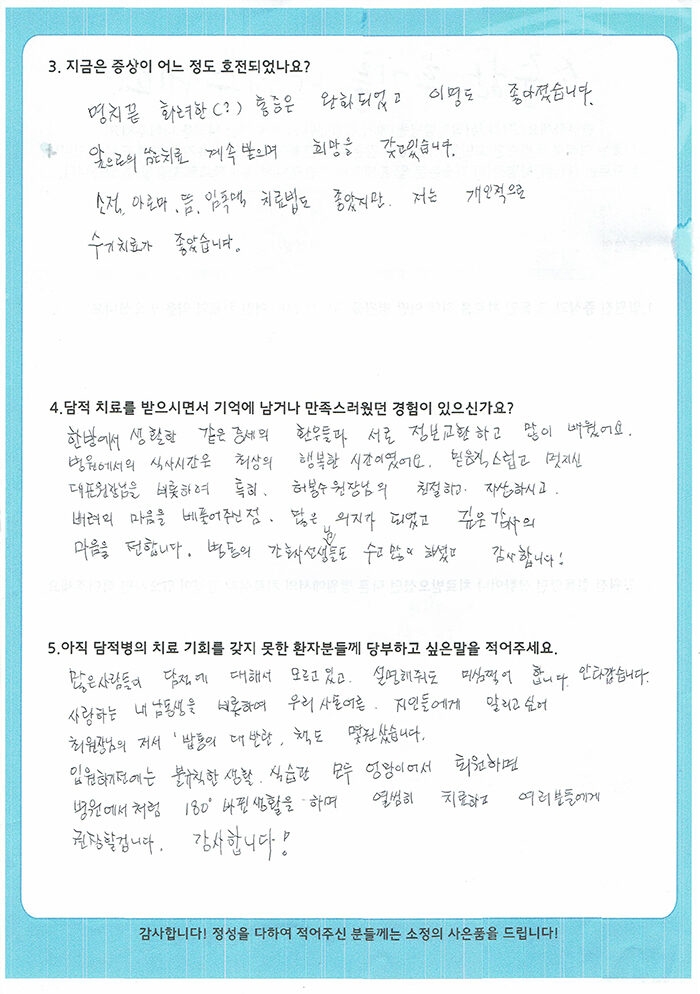 3. 지금은 증상이 어느 정도 호전되었나요?
명치끝 화려한(?) 통증은 완화되었고 이명도 좋아졌습니다.
앞으로의 치료 계속 받으며 희망을 갖고있습니다.
소적, 아로마, 뜸, 임독맥 치료법도 좋았지만. 저는 개인적으로
수기치료가 좋았습니다.
4.담적 치료를 받으시면서 기억에 남거나 만족스러웠던 경험이 있으신가요?
한방에서 생활한 같은 증세의 환우들과 서로 정보교환하고 많이 배웠어요.
병원에서의 식사시간은 최상의 행복한 시간이였어요. 믿음직스럽고 멋지신
대표원장님을 비롯하여 특히, 허봉수원장님의 친절하고 자상하시고.
배려의 마음을 베풀어주신점. 많은 의지가 되었고 깊은감사의
마음을 전합니다. 병동의 간호사선생님들도 수고많이 하셨고 감사합니다!
5.아직 담적병의 치료 기회를 갖지 못한 환자분들께 당부하고 싶은말을 적어주세요.
많은사람들이 담적에 대해서 모르고있고. 설명해줘도 미심쩍어 합니다. 안타깝습니다.
사랑하는 내남동생을 비롯하여 우리 사돈어른. 지인들에게 알리고싶어
최원장님의 저서 '밥통의 대반란, 책도 몇권샀습니다.
입원하기전에는 불규칙한생활. 식습관 모두 엉망이어서 퇴원하면
병원에서처럼 180° 바뀐생활을 하며 열씸히 치료하고 여러분들에게
권장할겁니다. 감사합니다!
감사합니다! 정성을 다하여 적어주신 분들께는 소정의 사은품을 드립니다!